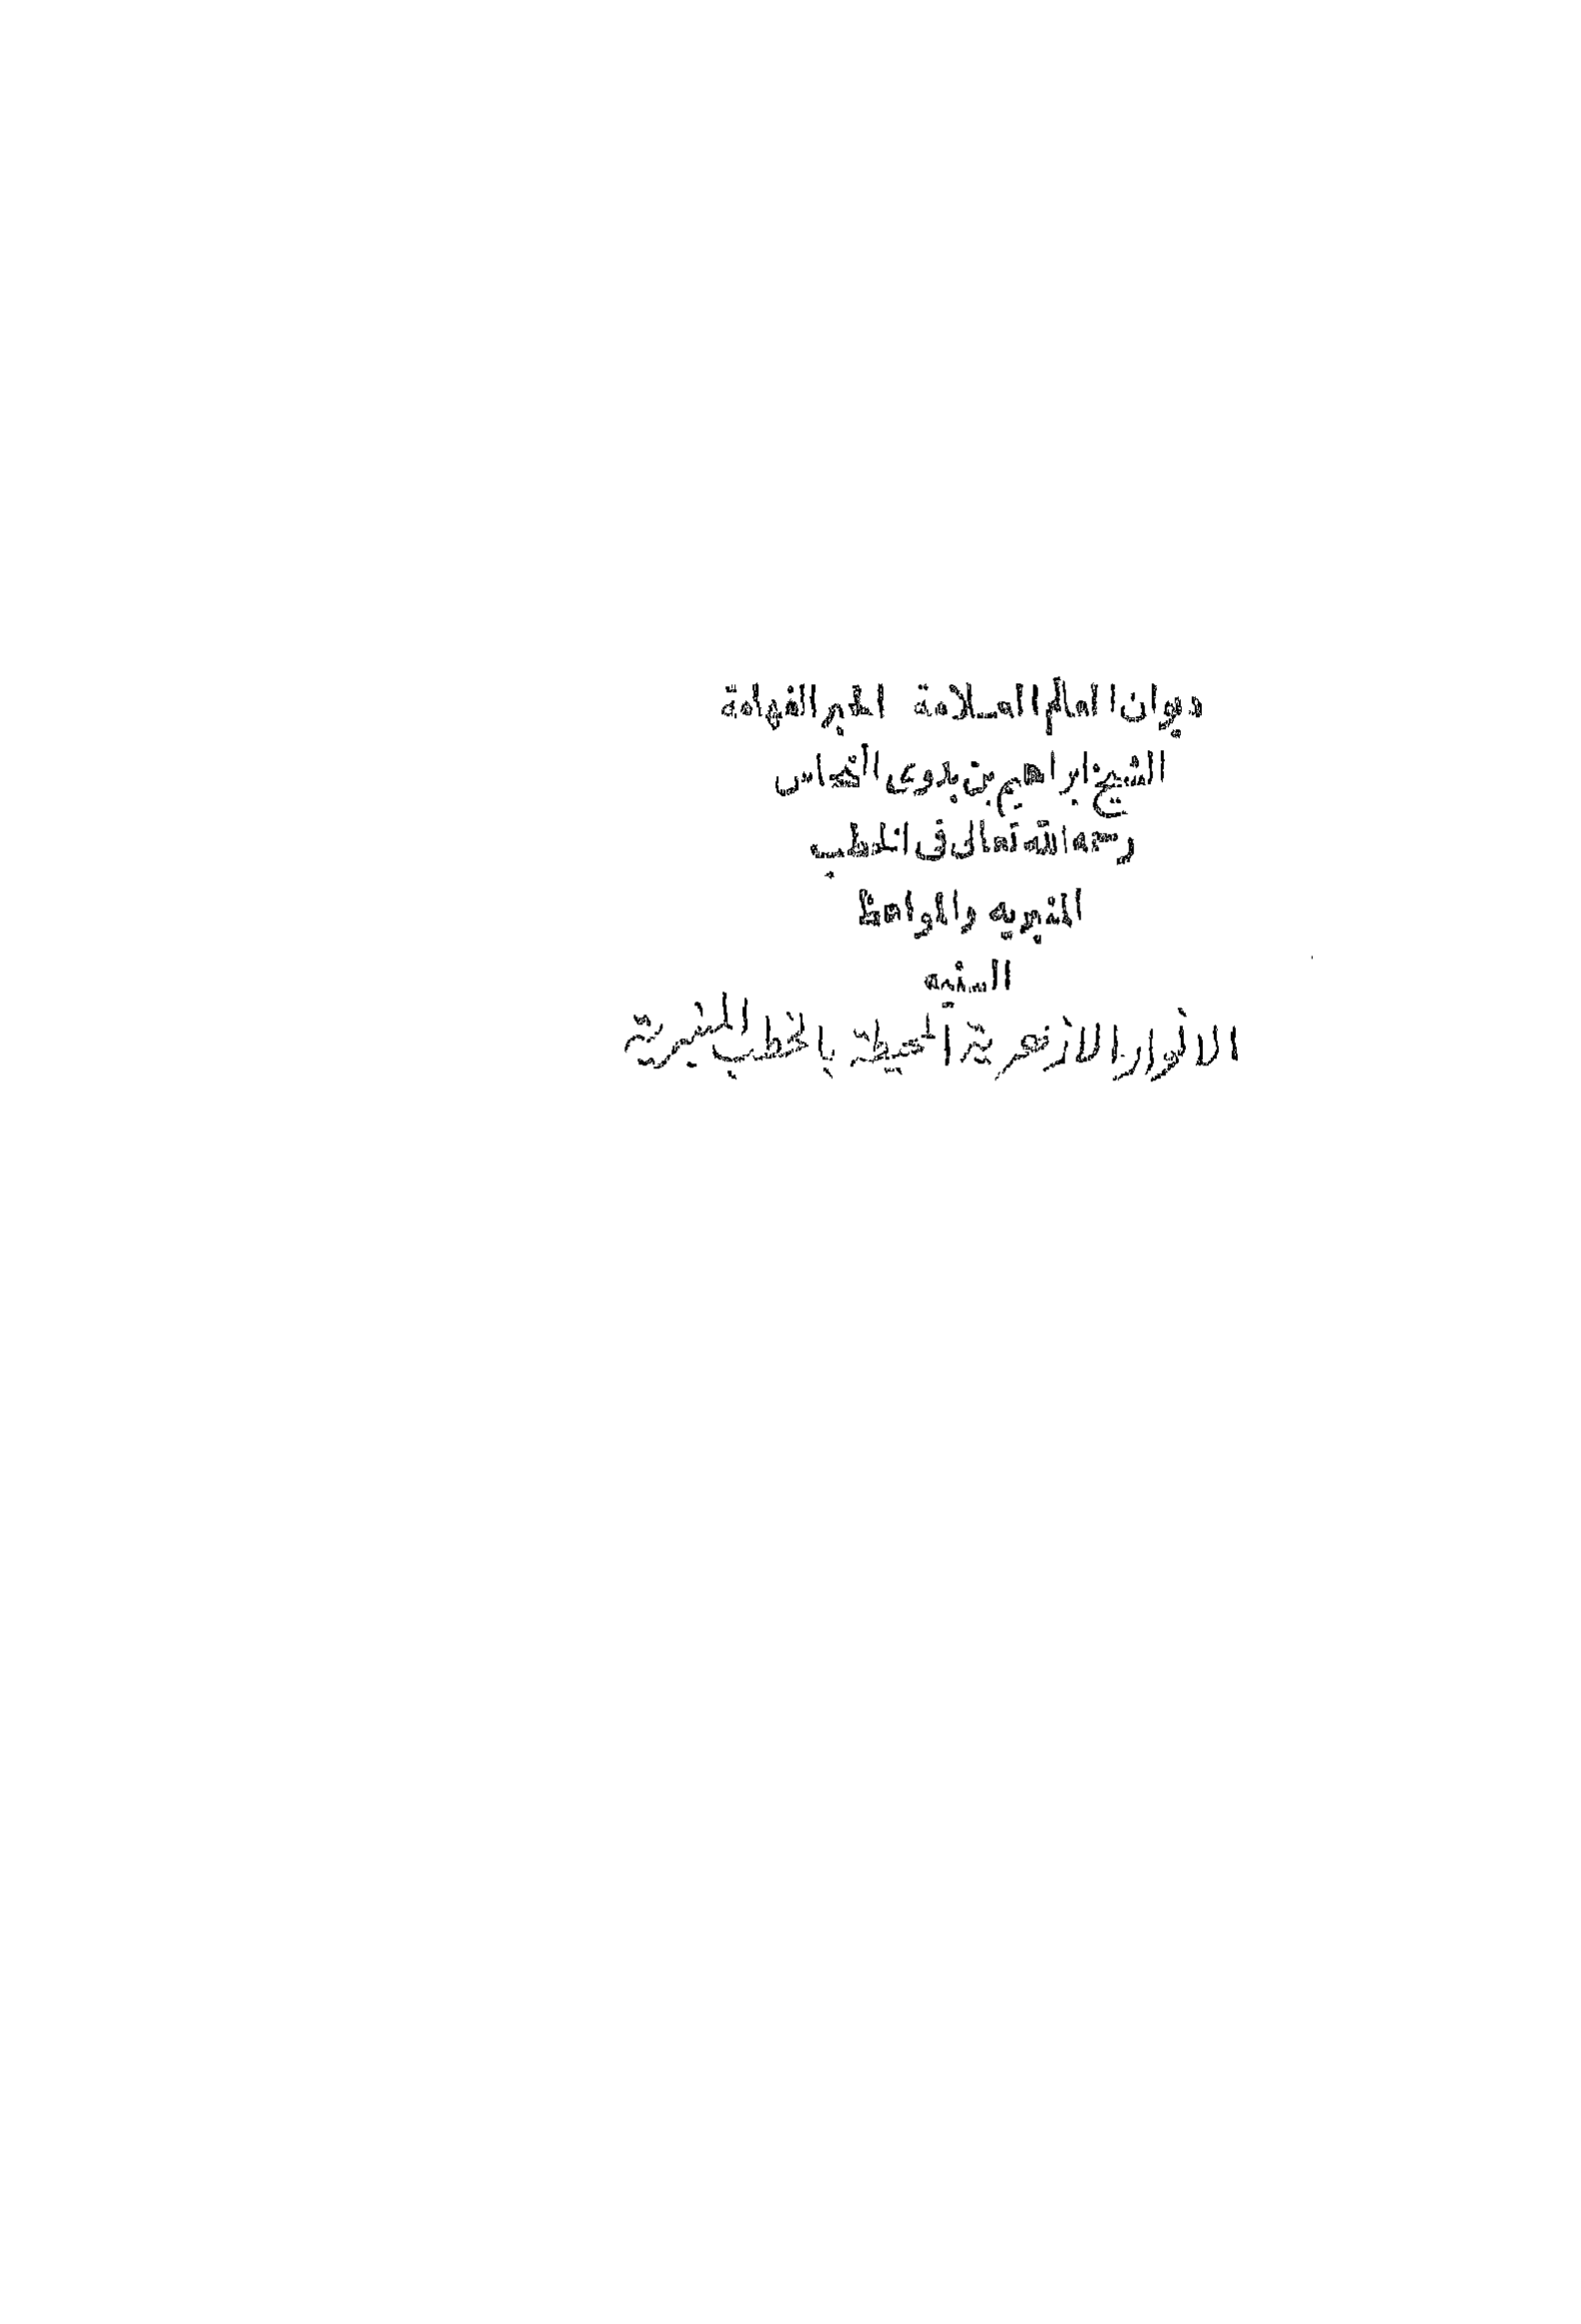 ديوان العالم العلامة الحبر الفهامة
الشيخ ابراهيم بن بدوى النحاس
رحمه الله تعالى فى الخطب
المنبريه والمواعظ
السنيه
الانوار الازهرية المحيطة بالخطب المنبرية